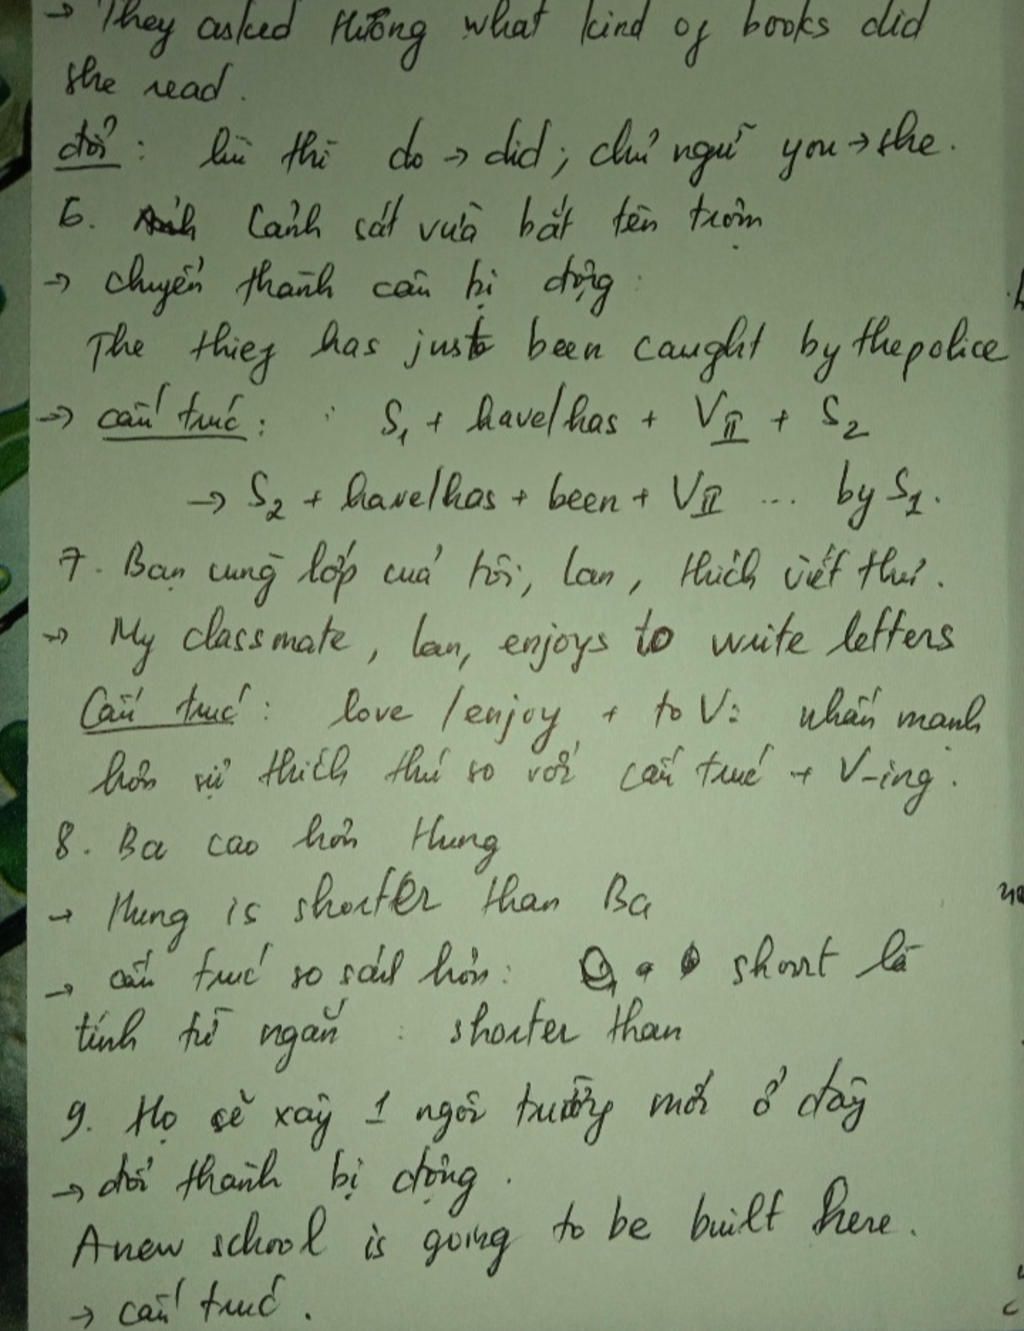 → They asked Hường what kind of books did
she read.
đổi: lùi thì do → did; chủ ngữ you → she.
6. Cảnh sát vừa bắt tên trộm
→ chuyển thành câu bị động:
The thief has just been caught by the police
→ cấu trúc: S₁ + have/has + VII + S₂
→ S₂ + have/has + been + VII ... by S₁.
7. Bạn cùng lớp của tôi, Lan, thích viết thư.
→ My classmate, Lan, enjoys to write letters
Cấu trúc: love / enjoy + to V: nhấn mạnh
hơn sự thích thú so với cấu trúc + V-ing.
8. Ba cao hơn Hung
→ Hung is shorter than Ba
→ cấu trúc so sánh hơn: short là
tính từ ngắn : shorter than
9. Họ sẽ xây 1 ngôi trường mới ở đây
→ đổi thành bị động.
A new school is going to be built here.
→ cấu trúc.